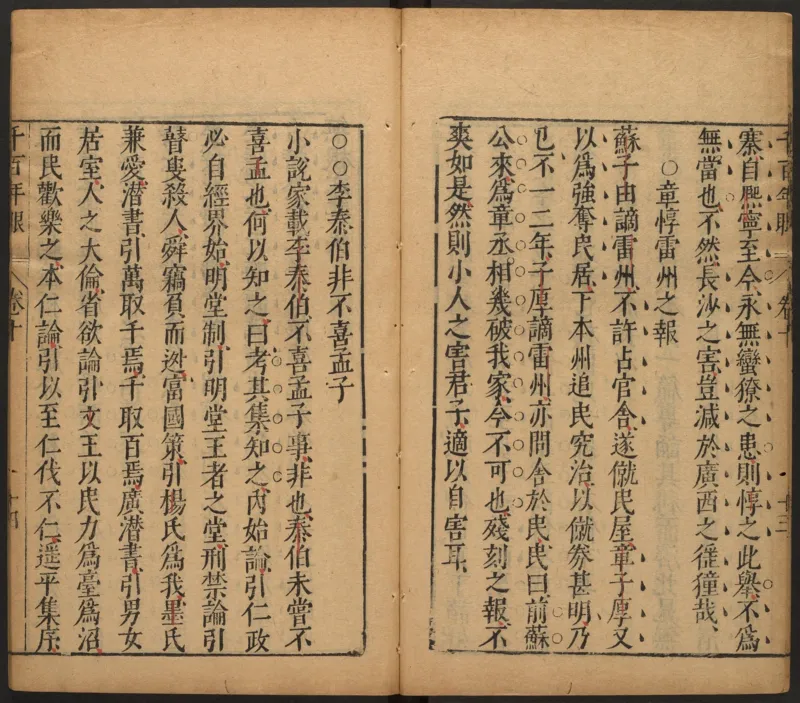 千百年眼 卷十 十三
寨自熙寧至今永無蠻獠之患則惇之此舉不爲
無當也不然長沙之害豈減於廣西之徭獞哉
○章惇雷州之報
蘇子由謫雷州不許占官舍遂僦民屋章子厚又
以爲強奪民居下本州追民究治以僦券甚明乃
已不一二年子厚謫雷州亦問舍於民民曰前蘇
公來爲章丞相幾破我家今不可也殘刻之報不
爽如是然則小人之害君子適以自害耳
○○李泰伯非不喜孟子
小說家載李泰伯不喜孟子事非也泰伯未嘗不
喜孟也何以知之曰考其集知之內始論引仁政
必自經界始明堂制引明堂王者之堂刑禁論引
瞽叟殺人舜竊負而逃富國策引楊氏爲我墨氏
兼愛潛書引萬取千焉千取百焉廣潛書引男女
居室人之大倫省欲論引文王以民力爲臺爲沼
而民歡樂之本仁論引以至仁伐不仁遥平集序
千百年眼 卷十 十四